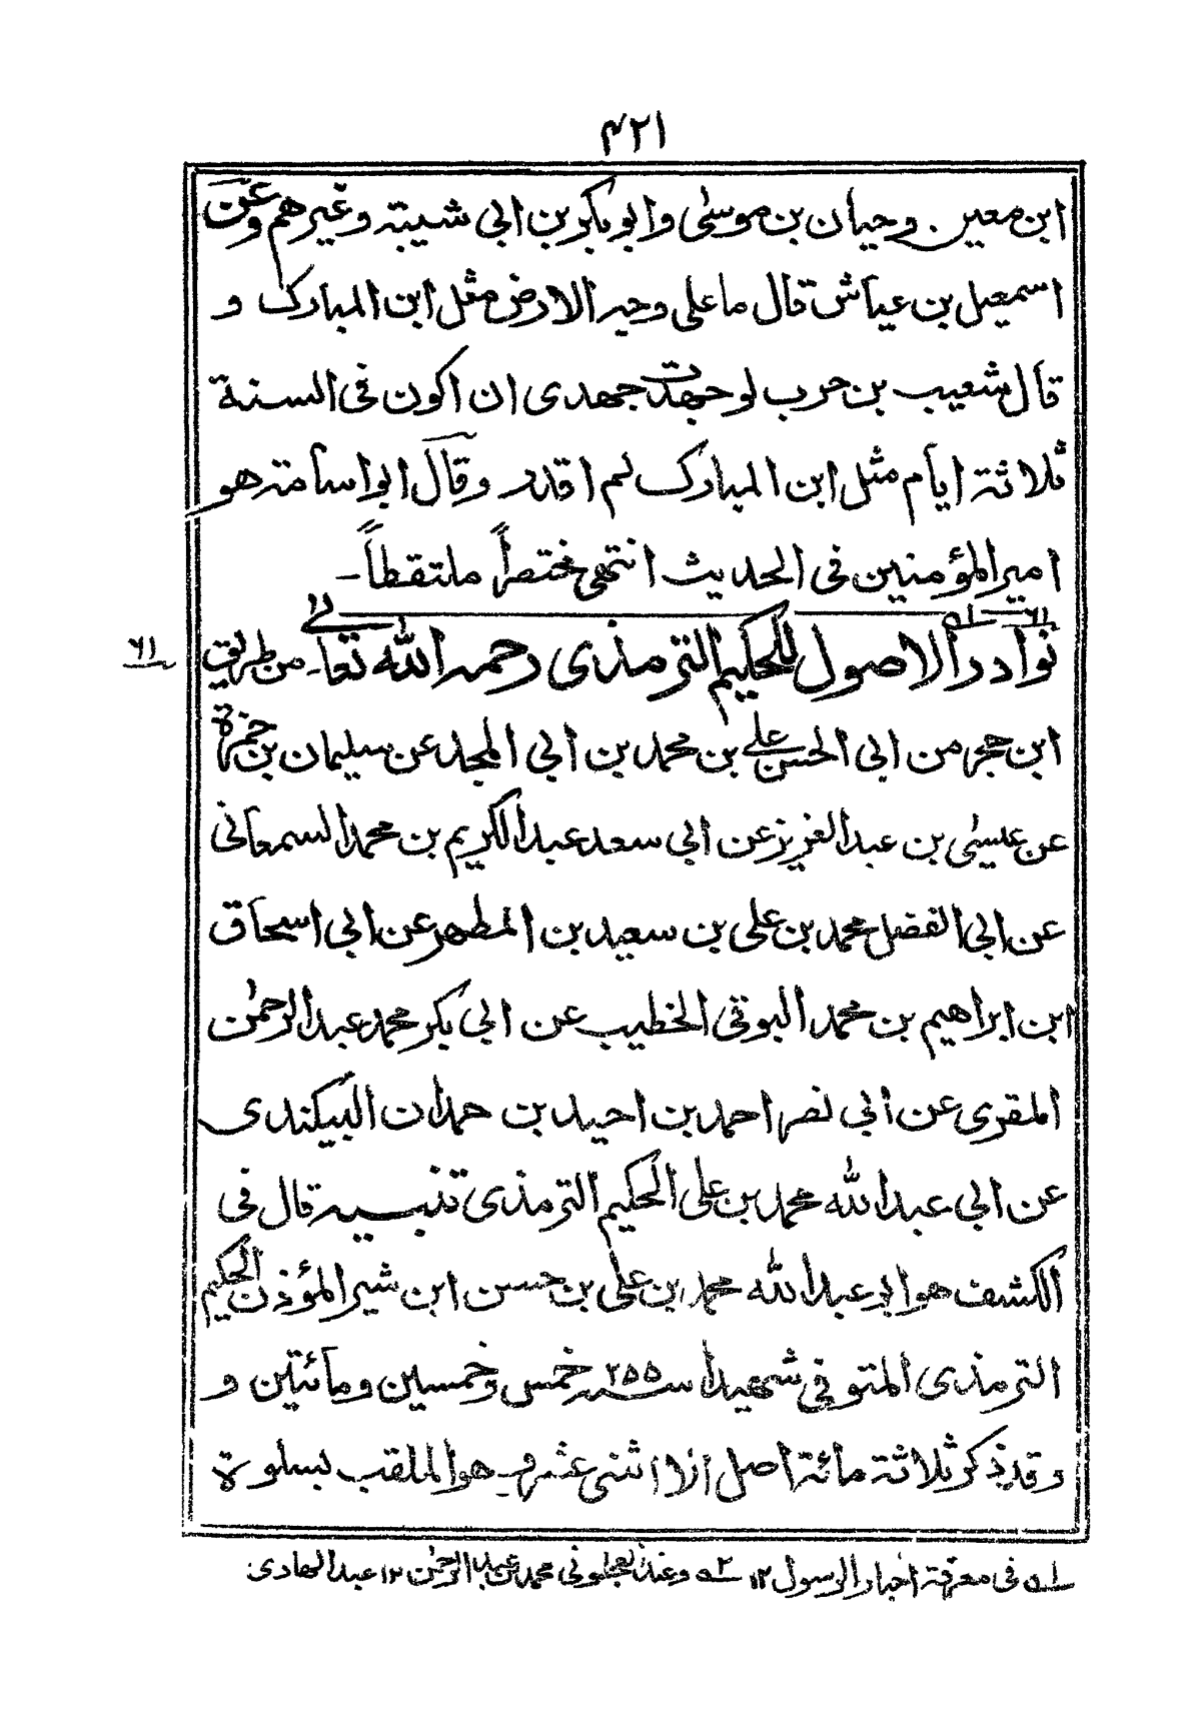 ۴۲۱
ابن معين وحبان بن موسٰى وابو بكر بن ابي شيبة وغيرهم وعن
اسمعيل بن عياش قال ما على وجه الارض مثل ابن المبارك و
قال شعيب بن حرب لو جهدت جهدى ان اكون فى السنة
ثلاثة ايام مثل ابن المبارك لم اقدر وقال ابو اسامة هو
امير المؤمنين فى الحديث انتهى مختصراً ملتقطاً ـ
نوادر الاصول للحكيم الترمذى رحمه الله تعالٰے من طريق
۶۱
ابن حجر من ابى الحسن علے بن محمد بن ابي المجد عن سليمان بن حمزة
عن عيسٰى بن عبد العزيز عن ابي سعد عبد الكريم بن محمد السمعانى
عن ابي الفضل محمد بن على بن سعيد بن المطهر عن ابي اسحاق
ابن ابراهيم بن محمد البوقى الخطيب عن ابي بكر محمد عبد الرحمٰن
المقرى عن ابي نصر احمد بن احيد بن حمدان البيكندى
عن ابي عبد الله محمد بن على الحكيم الترمذى تنبيه قال فى
الكشف هو ابو عبد الله محمد بن على بن حسن ابن شير المؤذن الحكيم
الترمذى المتوفى شهيدا سنه ۲۵۵ خمس وخمسين ومائتين و
وقد ذكر ثلاثة مائة اصل الا اثنى عشر و هو الملقب بسلوة
لـه فى معرفة اخبار الرسول ۱۲ ۲ـه وعند محمد بن عبد الرحمٰن ۱۲ عبد الهادى